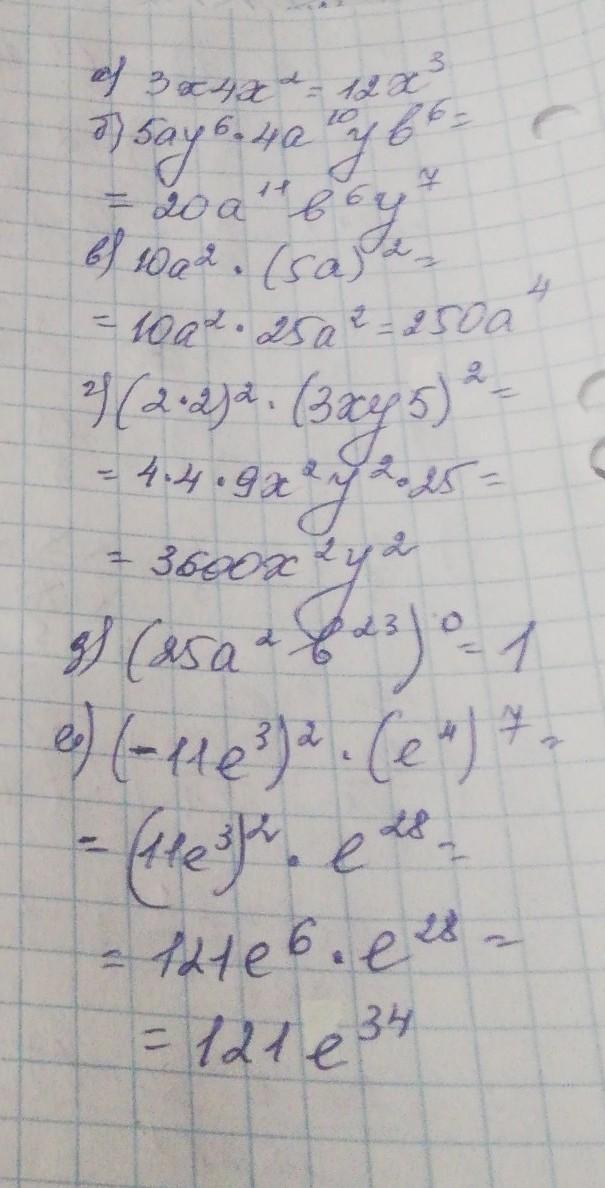 а) 3x4x² = 12x³
б) 5ay⁶·4a¹⁰yb⁶ =
= 20a¹¹b⁶y⁷
в) 10a²·(5a)² =
= 10a²·25a² = 250a⁴
г) (2·2)²·(3xy5)² =
= 4·4·9x²y²·25 =
= 3600x²y²
д) (25a²b²³)⁰ = 1
е) (-11e³)²·(e⁴)⁷ =
= (11e³)²·e²⁸ =
= 121e⁶·e²⁸ =
= 121e³⁴